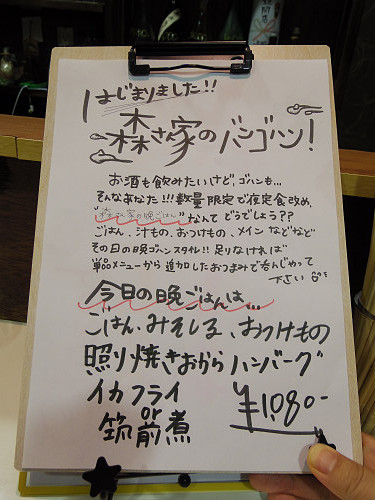 はじまりました!!
森さ家のバンゴハン!
お酒も飲みたいけど、ゴハンも...
そんなあなた!!!数量限定で夜定食改め、
"森さ家の晩ごはん"なんてどうでしょう??
ごはん、汁もの、おつけもの、メインなどなど
その日の晩ゴハンスタイル!!足りなければ
単品メニューから追加したおつまみで呑んじゃって
下さい
今日の晩ごはんは...
ごはん、みそしる、おつけもの
照り焼きおからハンバーグ
イカフライ
or
筑前煮
¥1,080-